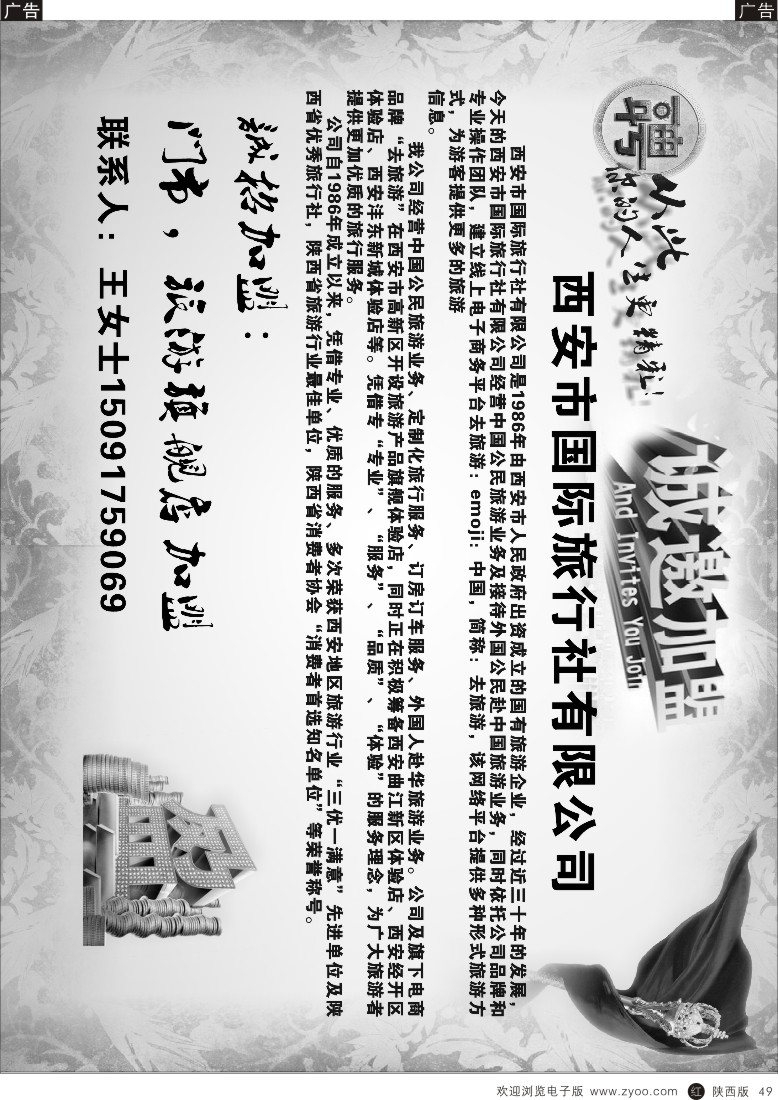 广告
广告
聘
从此
你的人生更精彩!
诚邀加盟
And Invites You Join
西安市国际旅行社有限公司
西安市国际旅行社有限公司是1986年由西安市人民政府出资成立的国有旅游企业，经过近三十年的发展，
今天的西安市国际旅行社有限公司经营中国公民旅游业务及接待外国公民赴中国旅游业务，同时依托公司品牌和
专业操作团队，建立线上电子商务平台去旅游：emoji：中国，简称：去旅游，该网络平台提供多种形式旅游方
式，为游客提供更多的旅游
信息。
我公司经营中国公民旅游业务、定制化旅行服务、订房订车服务、外国人赴华旅游业务。公司及旗下电商
品牌“去旅游”在西安市高新区开设旅游产品旗舰体验店，同时正在积极筹备西安曲江新区体验店、西安经开区
体验店、西安沣东新城体验店等。凭借专“专业”、“服务”、“品质”、“体验”的服务理念，为广大旅游者
提供更加优质的旅行服务。
公司自1986年成立以来，凭借专业、优质的服务、多次荣获西安地区旅游行业“三优一满意”先进单位及陕
西省优秀旅行社，陕西省旅游行业最佳单位，陕西省消费者协会“消费者首选知名单位”等荣誉称号。
诚招加盟：
门市，旅游旗舰店加盟
联系人：王女士15091759069
招
欢迎浏览电子版 www.zyoo.com 红 陕西版 49